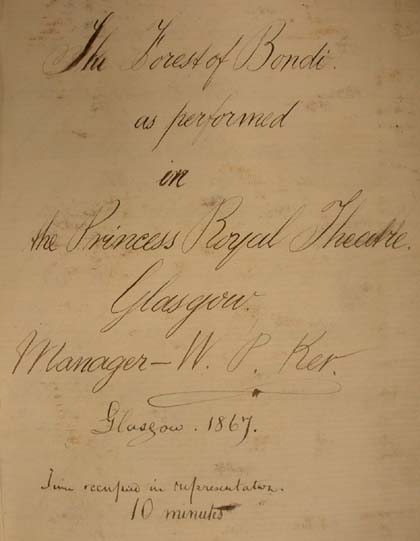 The Forest of Bondi.
as performed
in
the Princess Royal Theatre.
Glasgow.
Manager — W. P. Ker.
Glasgow. 1867.
Time occupied in representation.
10 minutes